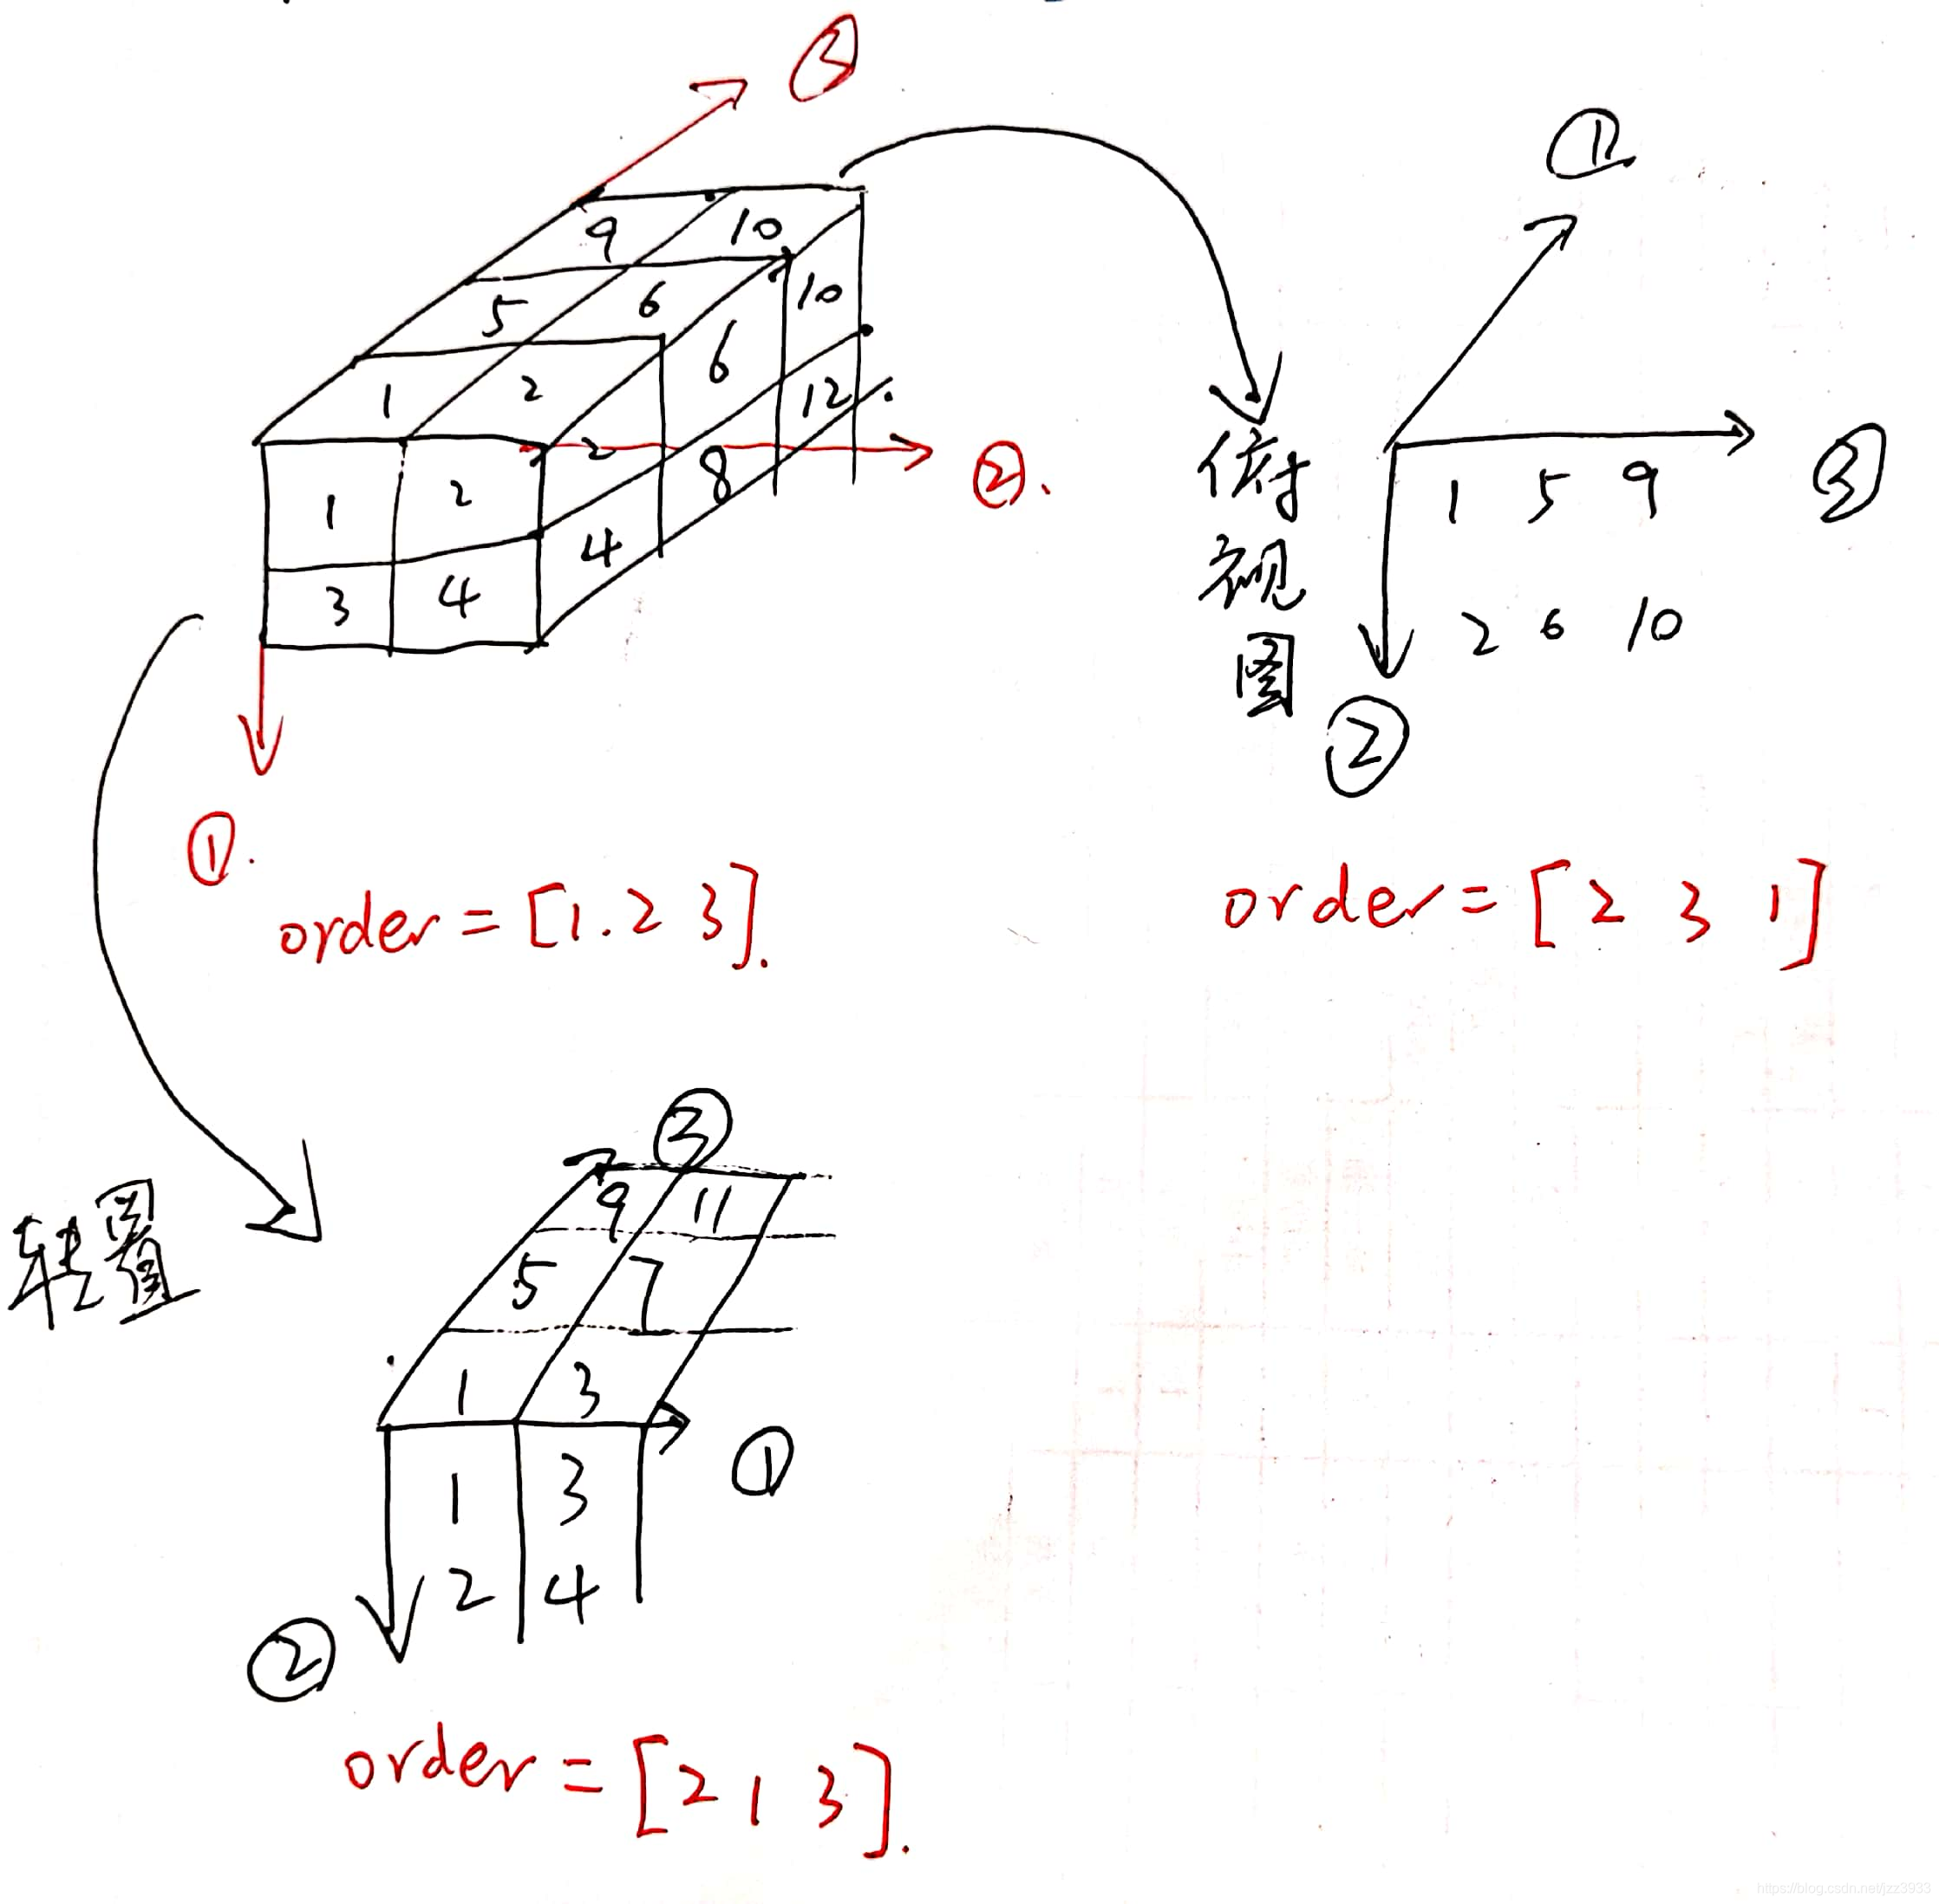 ③
9 10
5 6 10
1 2 6 12
2 8
1 2 4
3 4
②.
①.
order = [1. 2 3].
俯视图
①
③
1 5 9
2 6 10
②
order = [2 3 1]
转置
③
9 11
5 7
1 3
①
1 3
2 4
②
order = [2 1 3].
https://blog.csdn.net/jzz3933